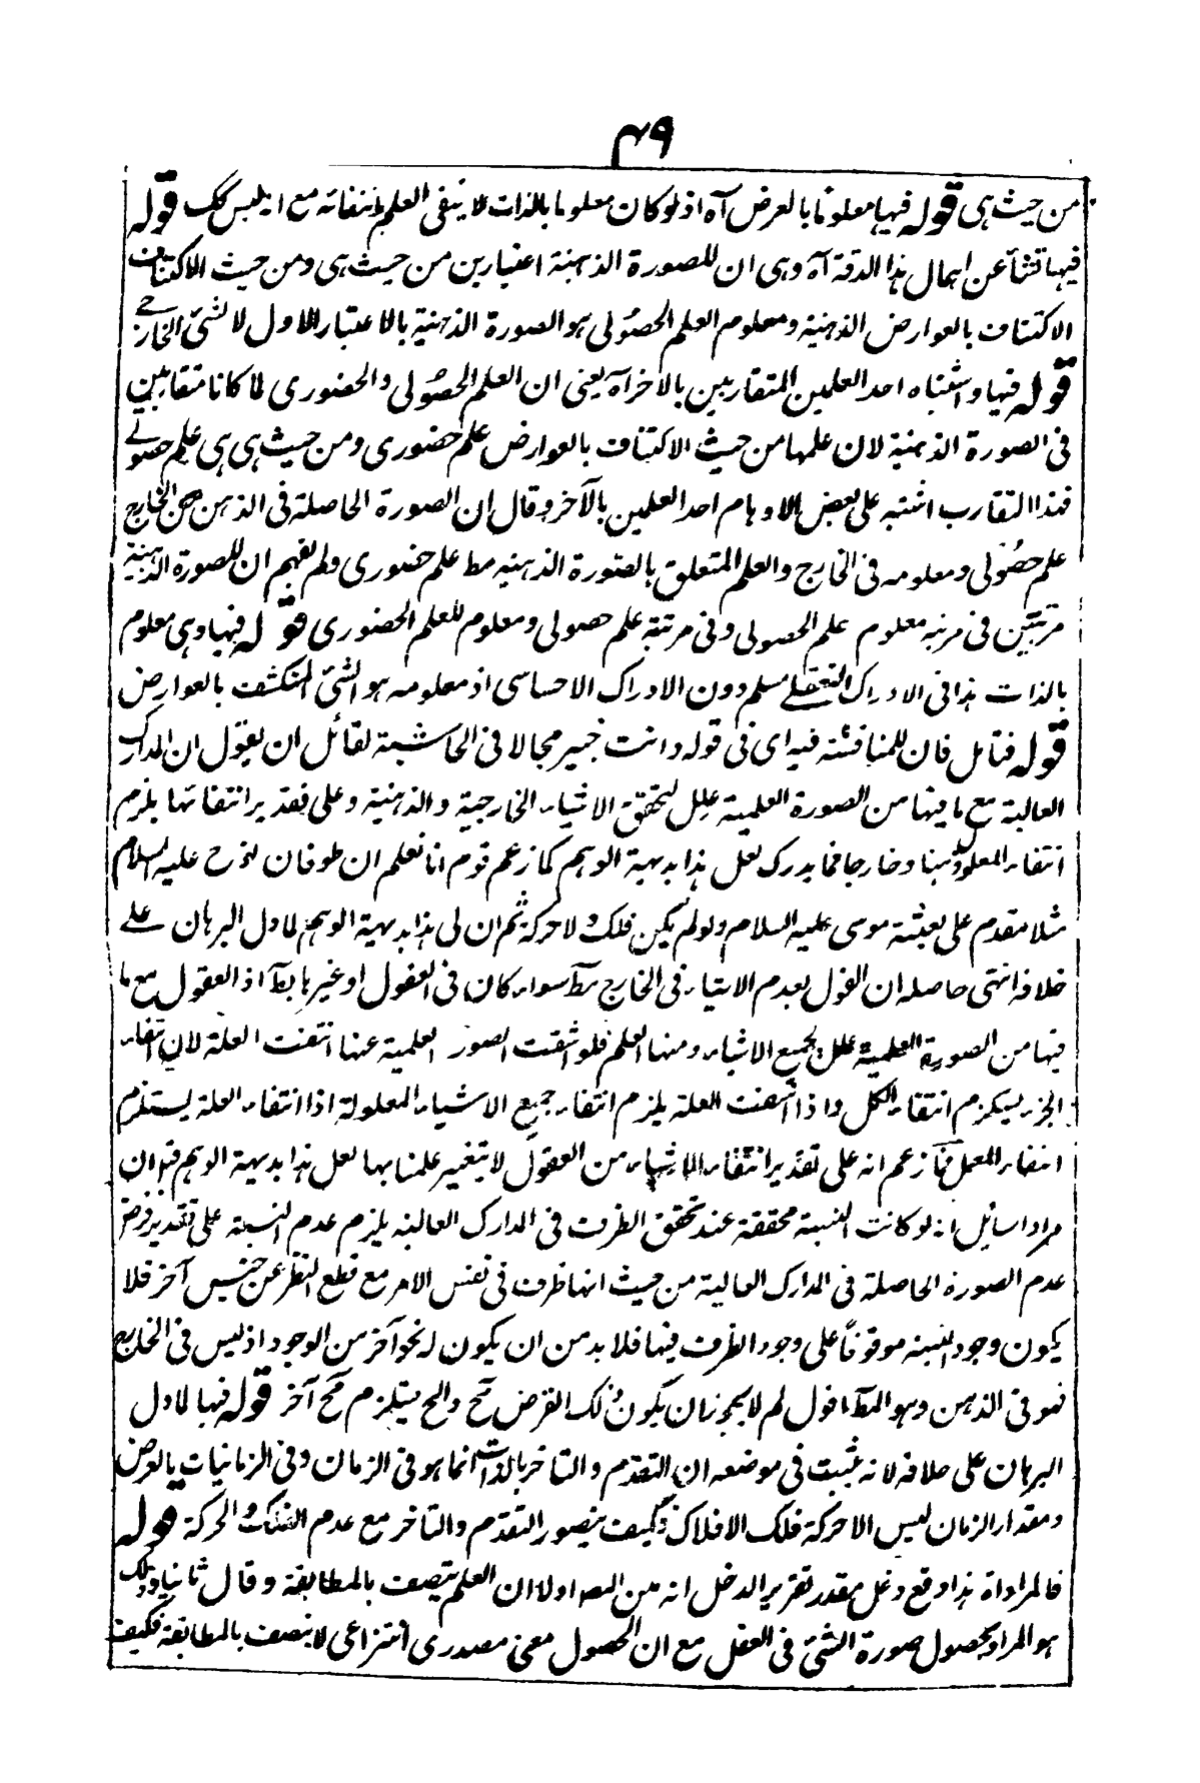 ٤٩
من حيث هى قوله فيها معلوما بالعرض آه اذ لو كان معلوما بالذات لا ينفى العلم بانتفائه مع ليس كك قوله
فيها تنشأ عن اهمال هذا الدقة آه وهى ان للصورة الذهنية اعتبارين من حيث هى ومن حيث الاكتناف
الاكتناف بالعوارض الذهنية ومعلوم العلم الحصولى هو الصورة الذهنية بالاعتبار الاول لا الشئ الخارجى
قوله فيها واشتباه احد العلمين المتقاربين بالاخر آه يعنى ان العلم الحصولى والحضورى لما كانا متقاربين
فى الصورة الذهنية لان علمها من حيث الاكتناف بالعوارض علم حضورى ومن حيث هى هى علم حصولى
فهذا التقارب اشتبه على بعض الاوهام احد العلمين بالآخر وقال ان الصورة الحاصلة فى الذهن من الخارج
علم حصولى ومعلومه فى الخارج والعلم المتعلق بالصورة الذهنيه مط علم حضورى ولم يفهم ان للصورة الذهنية
مرتبتين فى مرتبه معلوم علم الحصولى وفى مرتبة علم حصولى ومعلوم للعلم الحضورى قوله فيها وهى معلوم
بالذات هذا فى الادراك التعقلى مسلم دون الادراك الاحساسى اذ معلومه هو الشئ المنكشف بالعوارض
قوله فتامل فان للمناقشة فيه اى فى قوله وانت خبير مجالا فى الحاشية لقائل ان يقول ان المدارك
العالية مع ما فيها من الصورة العلمية علل لتحقق الاشياء الخارجية والذهنية وعلى تقدير انتفائها يلزم
انتفاء المعلول ذهنا وخارجا فما يدرك لعل هذا بديهة الوهم كما زعم قوم انا نعلم ان طوفان نوح عليه السلام
مثلا مقدم على بعثة موسى عليه السلام ولو لم يكن فلك ولا حركة ثم ان لى هذا بديهية الوهم لما دل البرهان على
خلافه انتهى حاصله ان القول بعدم الاشياء فى الخارج مط سواء كان فى العقول او غيرها بط اذ العقول مع ما
فيها من الصورة العلمية علل لجميع الاشياء ومنها العلم فلو انتفت الصور العلمية عنها انتفت العلة لان انتفاء
الجزء يستلزم انتفاء الكل واذا انتفت العلة يلزم انتفاء جميع الاشياء المعلولة اذا انتفاء العلة يستلزم
انتفاء المعلول فما زعم انه على تقدير انتفاء الاشياء من العقول لا يتغير علمنا بها لعل هذا بديهة الوهم قوله ان
مراد السائل انه لو كانت النسبة محققة عند تحقق الظرف فى المدارك العالية يلزم عدم النسبة على تقدير فرض
عدم الصورة الحاصلة فى المدارك العالية من حيث انها ظرف فى نفس الامر مع قطع النظر عن جنس آخر فلا
يكون وجود النسبة موقوفا على وجود الظرف فيها فلا بد من ان يكون له نحو آخر من الوجود اذ ليس فى الخارج
فهو فى الذهن وهو المط اقول لم لا يجوز ان يكون ذلك الفرض مح والمح يستلزم مح آخر قوله فيها لما دل
البرهان على خلافه لانه يثبت فى موضعه ان التقدم والتاخر بالذات انما هو فى الزمان وفى الزمانيات بالعرض
ومقدار الزمان ليس الا حركة فلك الافلاك فكيف يتصور التقدم والتاخر مع عدم الفلك والحركة قوله
فالمراد آه هذا دفع دخل مقدر تقرير الدخل انه من المص اولا ان العلم يتصف بالمطابقة وقال ثانيا وذلك
هو المراد بحصول صورة الشئ فى العقل مع ان الحصول معنى مصدرى انتزاعى لا يتصف بالمطابقة فكيف